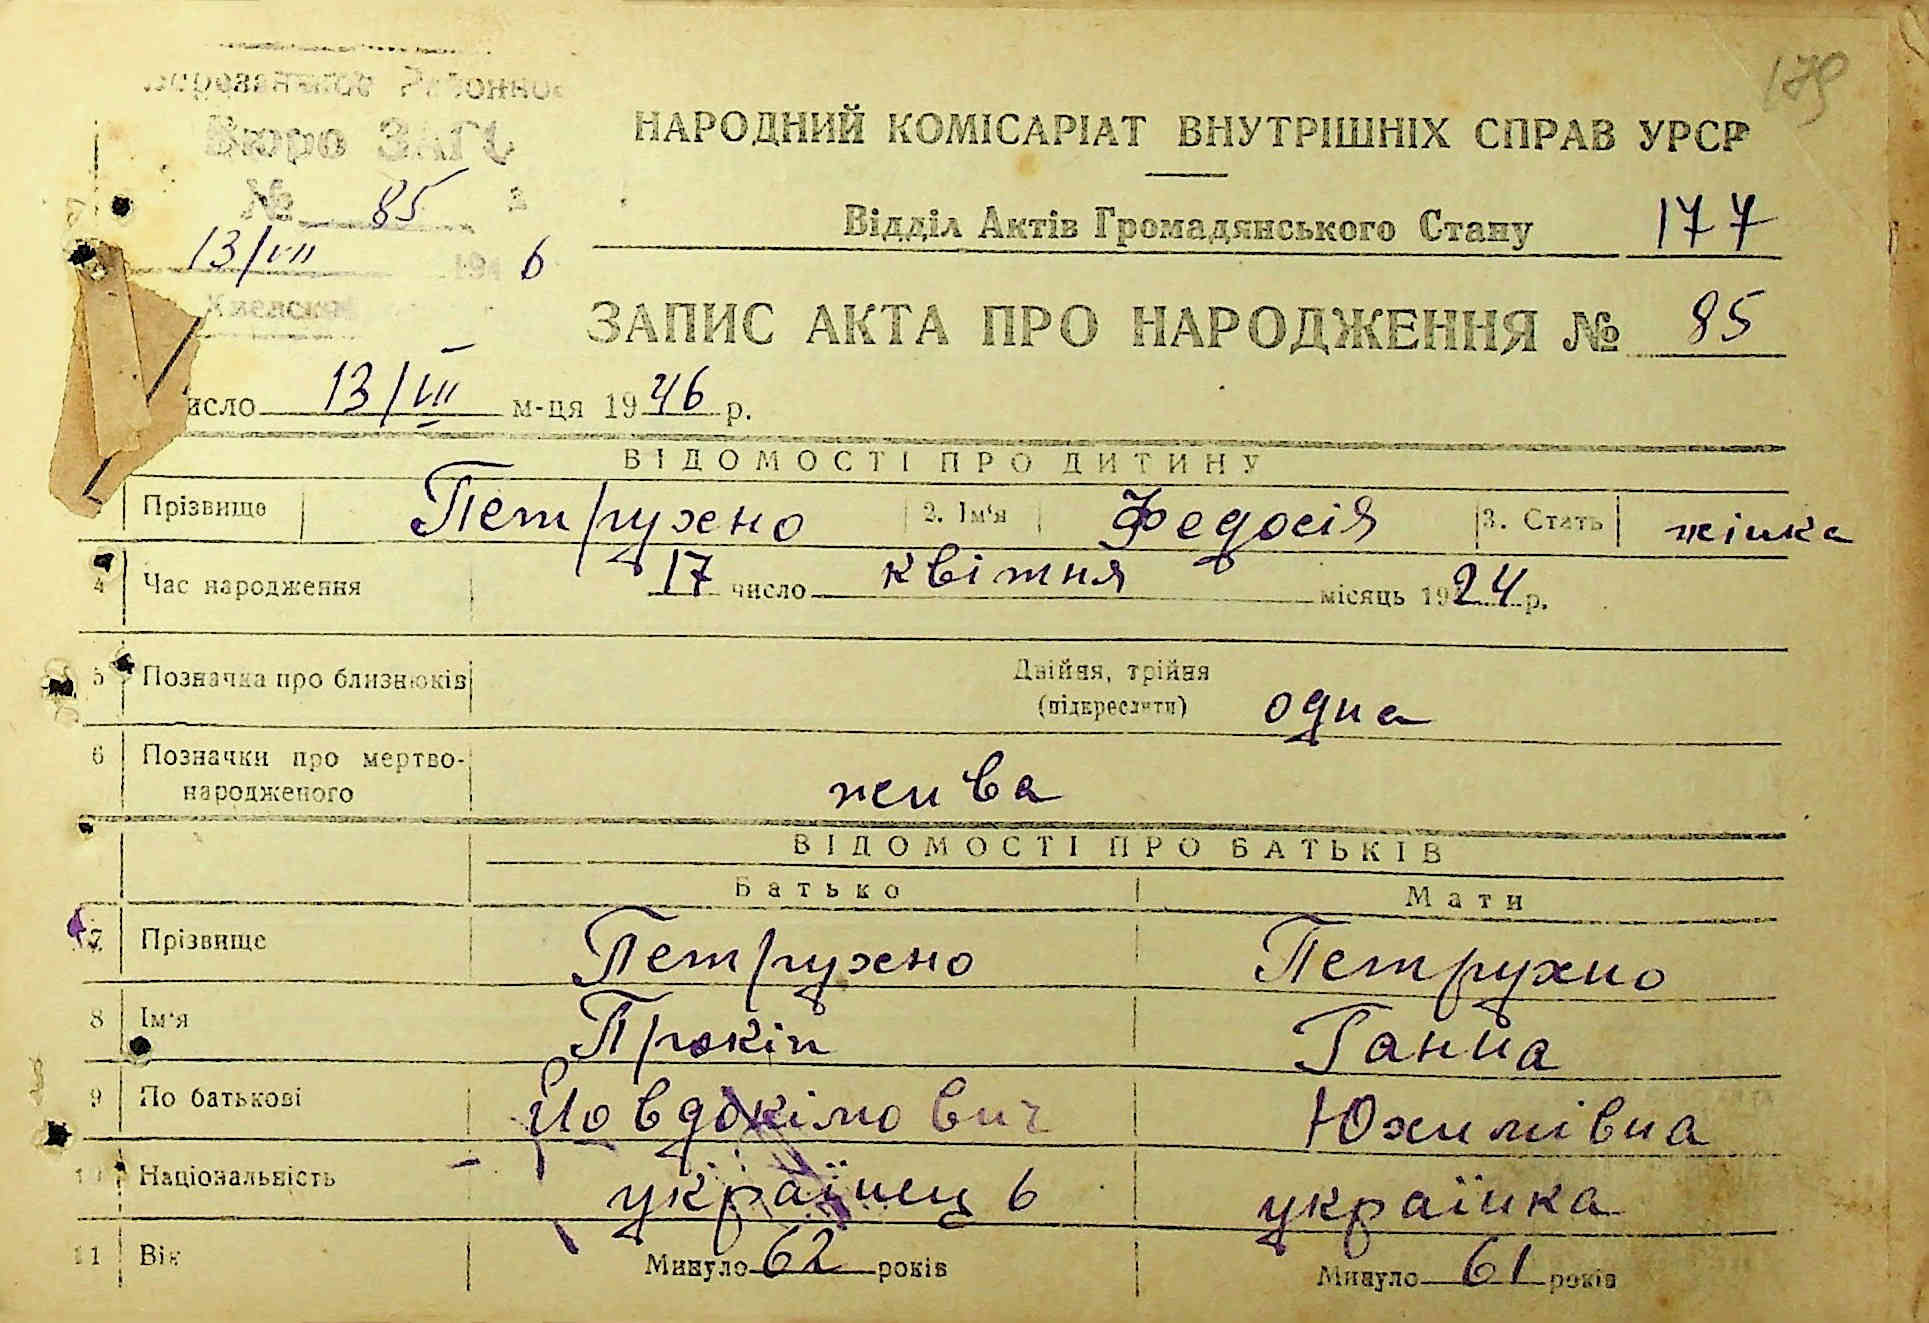 179
Бюро ЗАГС
№ 85
13/VII 1946
НАРОДНИЙ КОМІСАРІАТ ВНУТРІШНІХ СПРАВ УРСР
Відділ Актів Громадянського Стану 177
ЗАПИС АКТА ПРО НАРОДЖЕННЯ № 85
число 13/VII м-ця 1946 р.
ВІДОМОСТІ ПРО ДИТИНУ
Прізвище Петрухно 2. Ім'я Федосія 3. Стать жінка
4 Час народження 17 число квітня місяць 1924 р.
5 Позначка про близнюків Двійня, трійня
(підкреслити) одна
6 Позначки про мертво-
народженого жива
ВІДОМОСТІ ПРО БАТЬКІВ
Батько Мати
7 Прізвище Петрухно Петрухно
8 Ім'я Прокіп Ганна
9 По батькові Йовдокімович Юхимівна
10 Національність українець українка
11 Вік Минуло 62 років Минуло 61 років